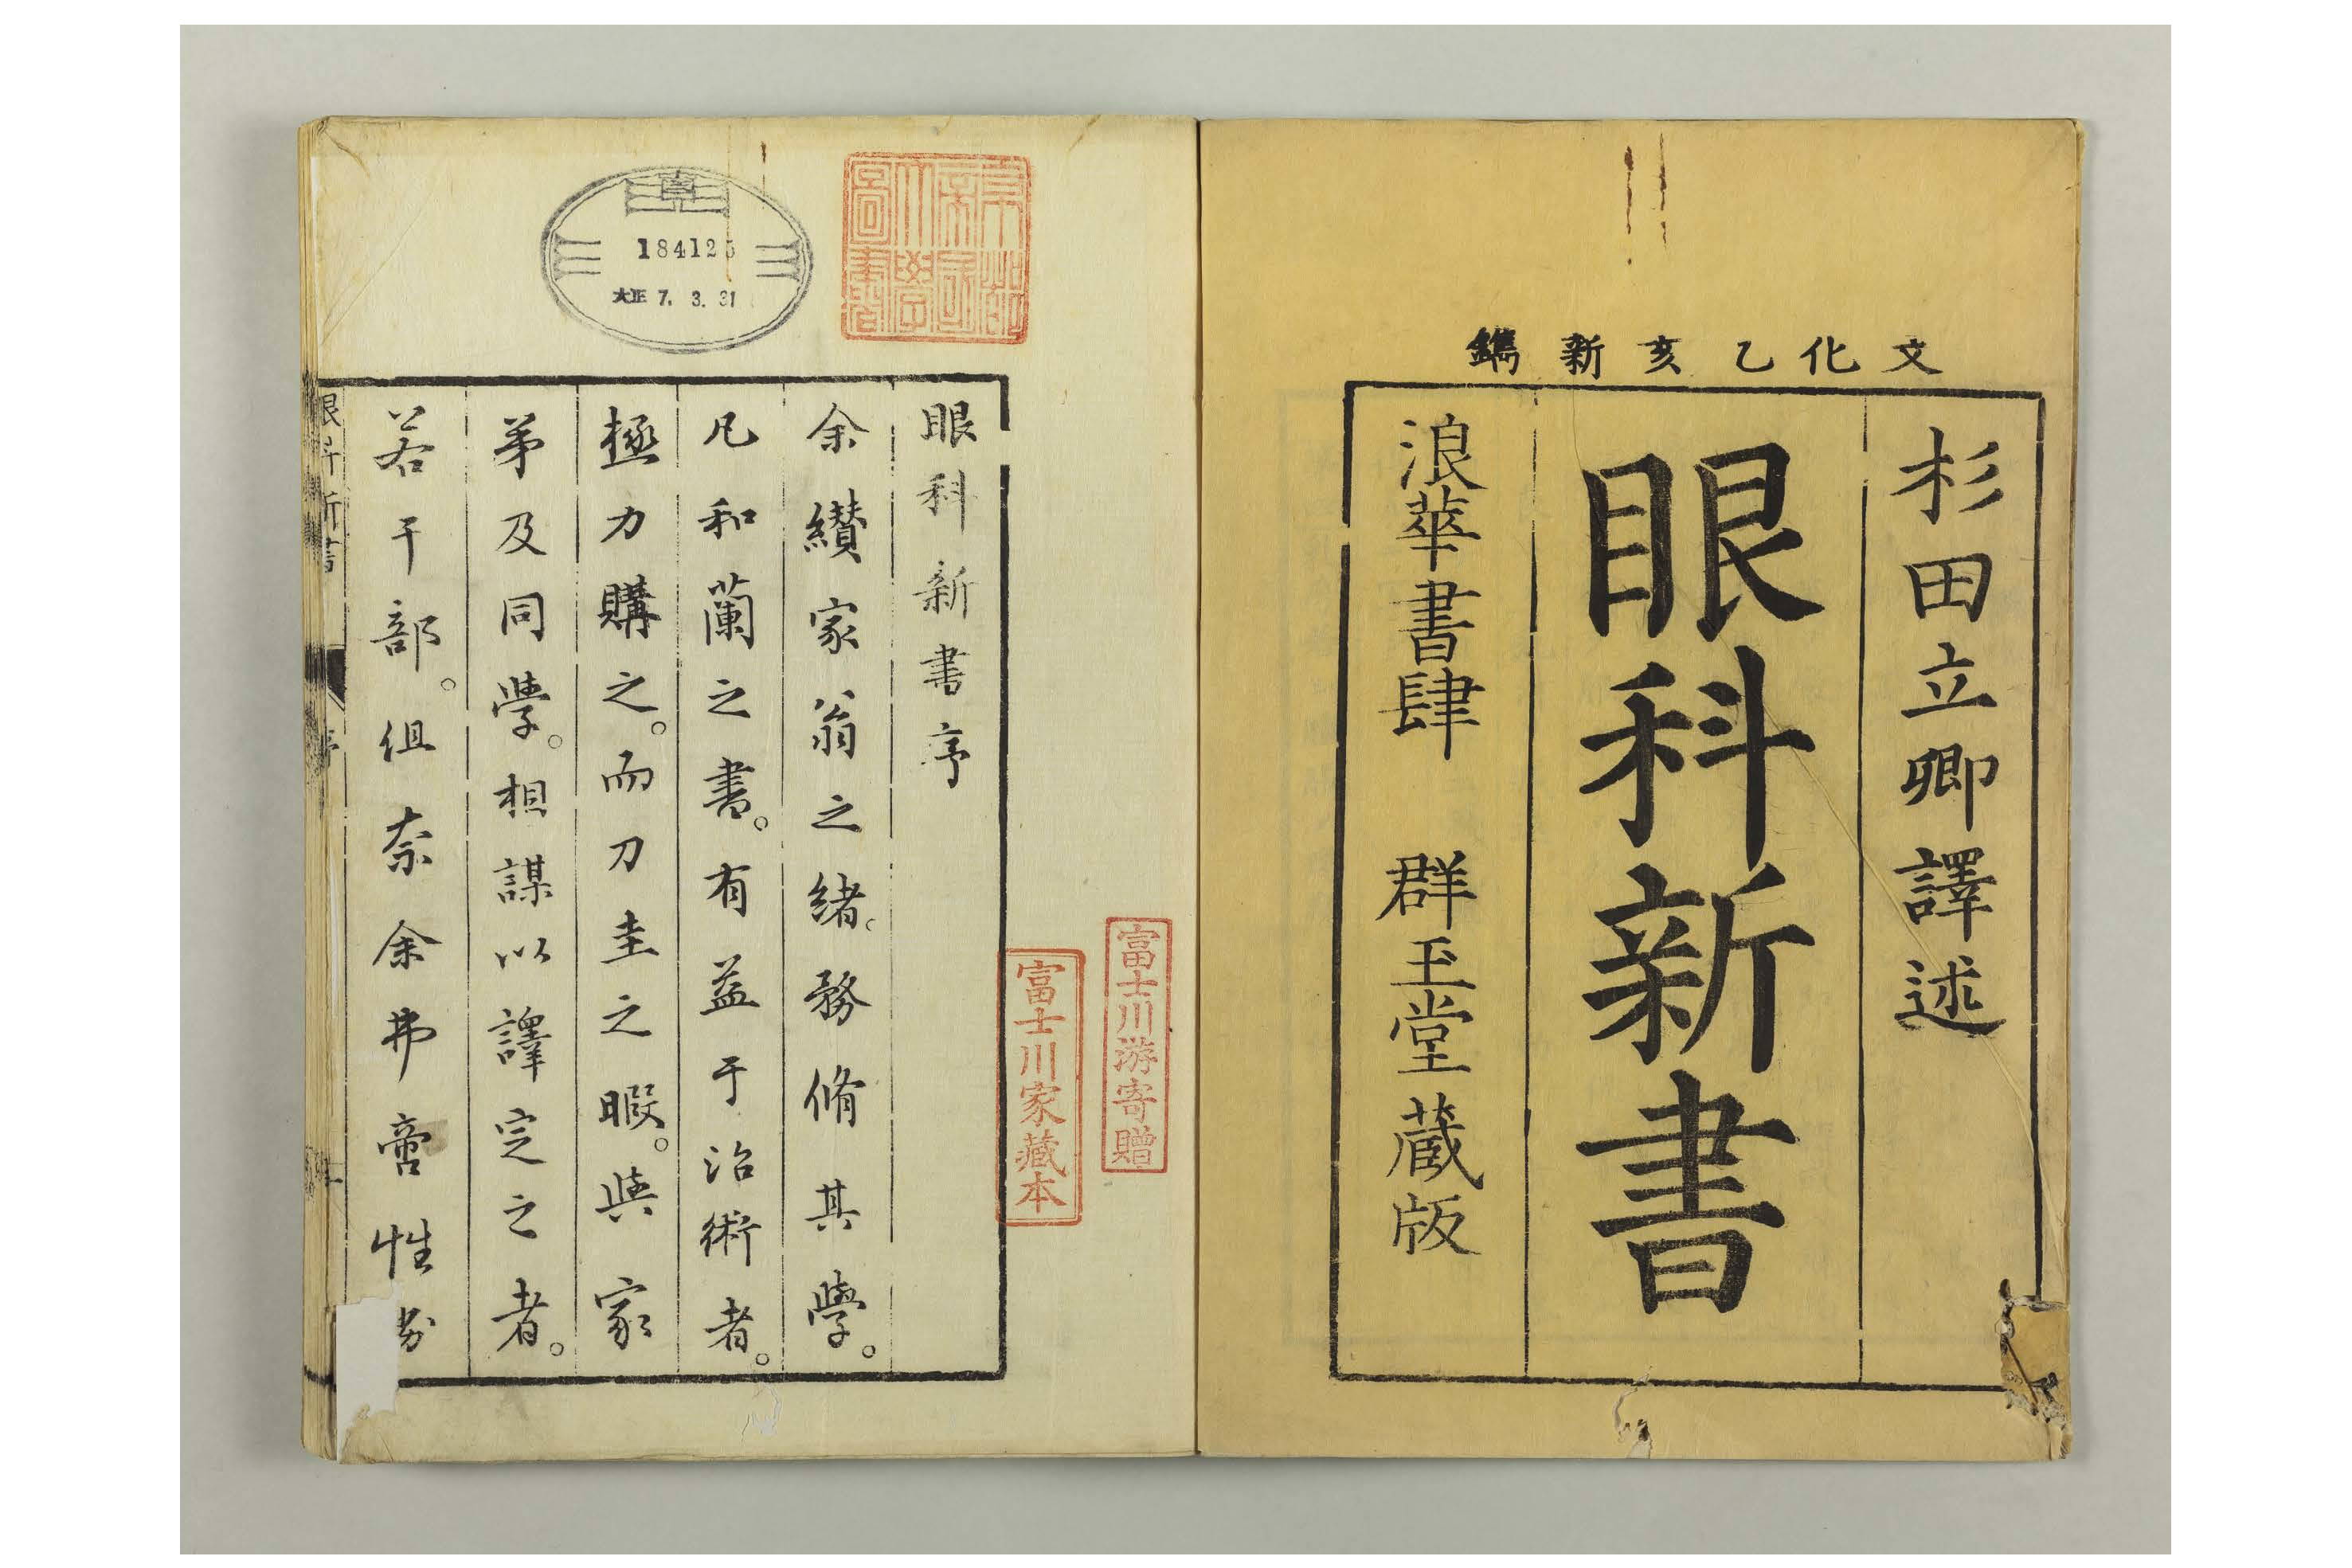 文化乙亥新鐫
杉田立卿譯述
眼科新書
浪華書肆 群玉堂蔵版
富士川游寄贈
富士川家藏本
184125
大正 7. 3. 31
眼科新書序
余纘家翁之緒。務脩其學。
凡和蘭之書。有益于治術者。
極力購之。而刀圭之暇。與家
苐及同學。相謀以譯定之者。
若干部。但奈余弗啻性
眼科新書
序